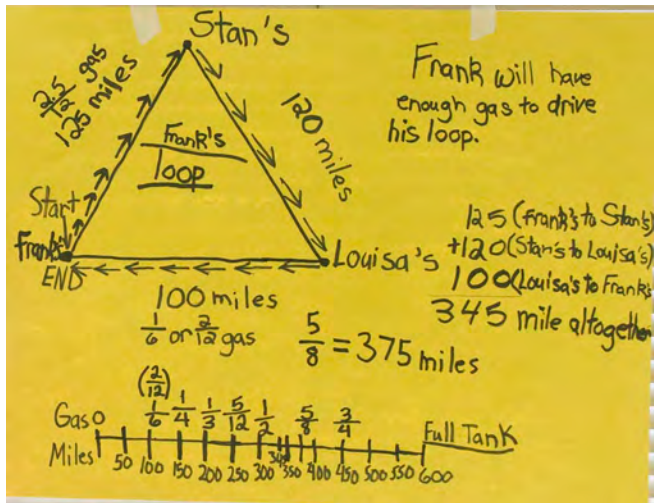 Stan's
2.5/12 gas
125 miles
120 miles
Frank's
loop
Start
Frank's
END
Louisa's
100 miles
1/6 or 2/12 gas
5/8 = 375 miles
Frank will have
enough gas to drive
his loop.
125 (Frank's to Stan's)
+120 (Stan's to Louisa's)
100 (Louisa's to Frank's
345 mile altogether
(2/12)
Gas 0 1/6 1/4 1/3 5/12 1/2 5/8 3/4 Full Tank
Miles 50 100 150 200 250 300 345 350 400 450 500 550 600